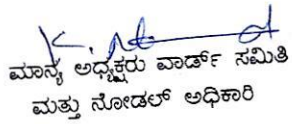 ಮಾನ್ಯ ಅಧ್ಯಕ್ಷರು ವಾರ್ಡ್ ಸಮಿತಿ
ಮತ್ತು ನೋಡಲ್ ಅಧಿಕಾರಿ